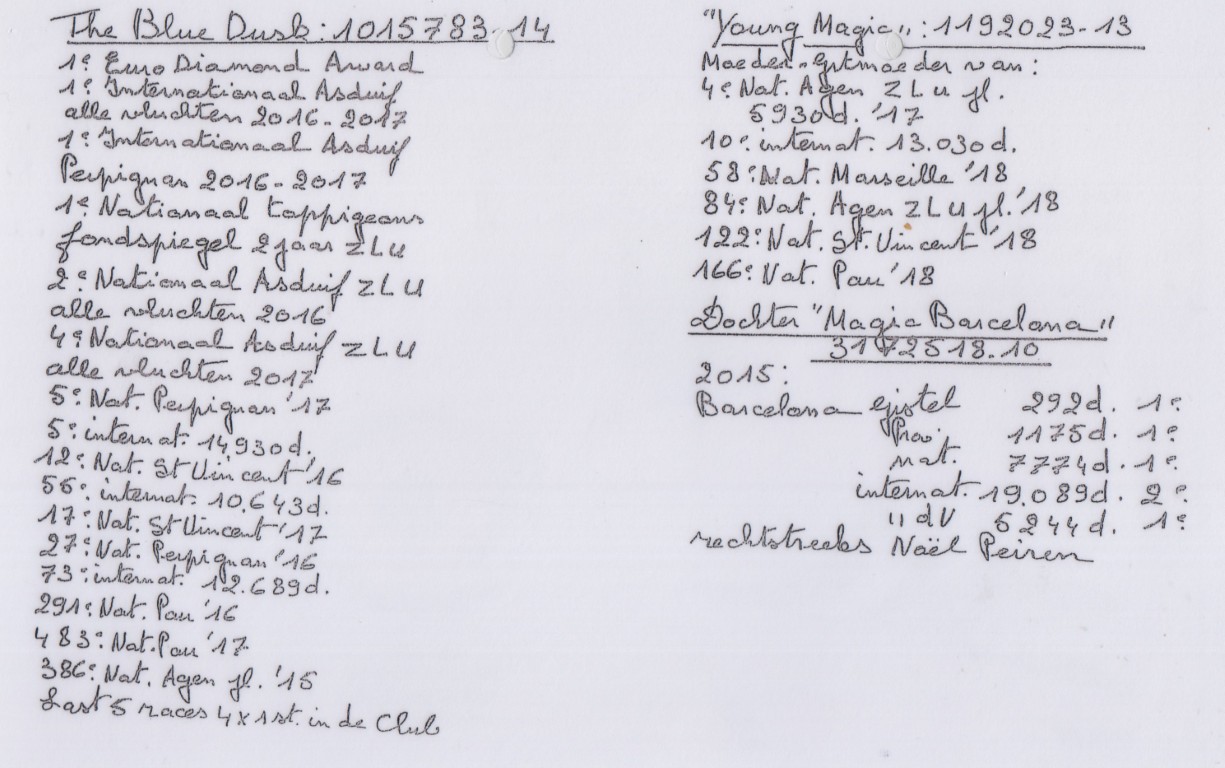 The Blue Dusk : 1015783-14
1e Euro Diamond Award
1e Internationaal Asduif
alle vluchten 2016-2017
1e Internationaal Asduif
Perpignan 2016-2017
1e Nationaal toppigeons
fondspiegel 2 jaar ZLU
2e Nationaal Asduif ZLU
alle vluchten 2016
4e Nationaal Asduif ZLU
alle vluchten 2017
5e Nat. Perpignan '17
5e internat. 14,930d.
12e Nat. St Vincent '16
55e internat. 10.643d.
17e Nat. St Vincent '17
27e Nat. Perpignan '16
73e internat. 12.689d.
291e Nat. Pau '16
483e Nat. Pau '17
386e Nat. Agen jl. '15
Last 5 races 4x1st. in de Club
"Young Magic" : 1192023-13
Moeder-Grtmoeder van :
4e Nat. Agen ZLU jl.
5930d. '17
10e internat. 13.030d.
58e Nat. Marseille '18
84e Nat. Agen ZLU jl. '18
122e Nat. St. Vincent '18
166e Nat. Pau '18
Dochter "Magic Barcelona"
3172518.10
2015 :
Barcelona gistel 292d. 1e
Prov. 1175d. 1e
nat. 7774d. 1e
internat. 19.089d. 2e
" dV 5244d. 1e
rechtstreeks Noël Peiren